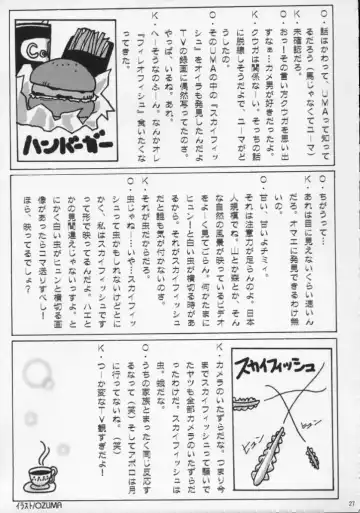 O．話はかわって、UMAって知って
るだろう（馬じゃなくてユーマ）
K．未確認だろ。
O．おぅーその言い方クウガを思い出
すなぁ…カメ男が好きだったよ。
K．クウガは関係ない。そっちの話
に脱線しそうだけど、ユーマがど
うしたの。
O．そのUMAの中の『スカイフィッ
シュ』をオイラも発見したんだよ
TVの録画に偶然写ってたのさ。
やっぱ、いるね。あれ。
K．へーそうなのふーん。なんかオレ
『フィレオフィッシュ』食いたくな
ってきた。
ハンバーガー
O．ちがうって…
K．あれは目に見えないくらい速いん
だろ。オマエに発見できるわけ無
いの。
O．甘い、甘いよチミィ。
それは注意力が足らんのよ。日本
人規模でね。山とか森とか、そん
な自然の風景が映っているビデオ
をよーく見てごらん。何かたまに
ヒュン！と白い虫が横切る時があ
るから。それがスカイフィッシュ
だと誰も気が付かないのさ。
K．それが虫だからだろ。
O．虫じゃね…いや…スカイフィッ
シュって虫かもしれないけどとに
かく、私はスカイフィッシュです
って形で映ってるんだよ。ハエと
かの見間違えじゃないっすよ、と
にかく白い虫がヒュンと横切る画
像があったらコマ送りすべし！
ほら、映ってるでしょ？
スカイフィッシュ
ヒュン
ヒュン
K．カメラのいたずらだな。つまり今
までスカイフィッシュって騒いで
たヤツも全部カメラのいたずらだ
ったわけだ。スカイフィッシュは
虫。蛾だな。
O．うちの家族とまったく同じ反応す
るなって（笑）そしてアポロは月
に行ってないね。（笑）
K．つーか変なTV観すぎだよ！
イラスト/OZUMA
27